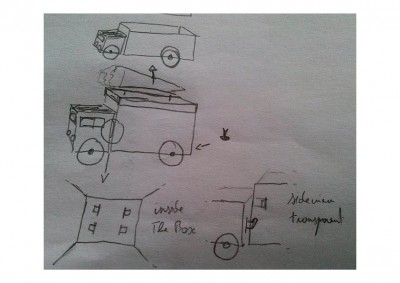 inside
The Box
sideview
transparent